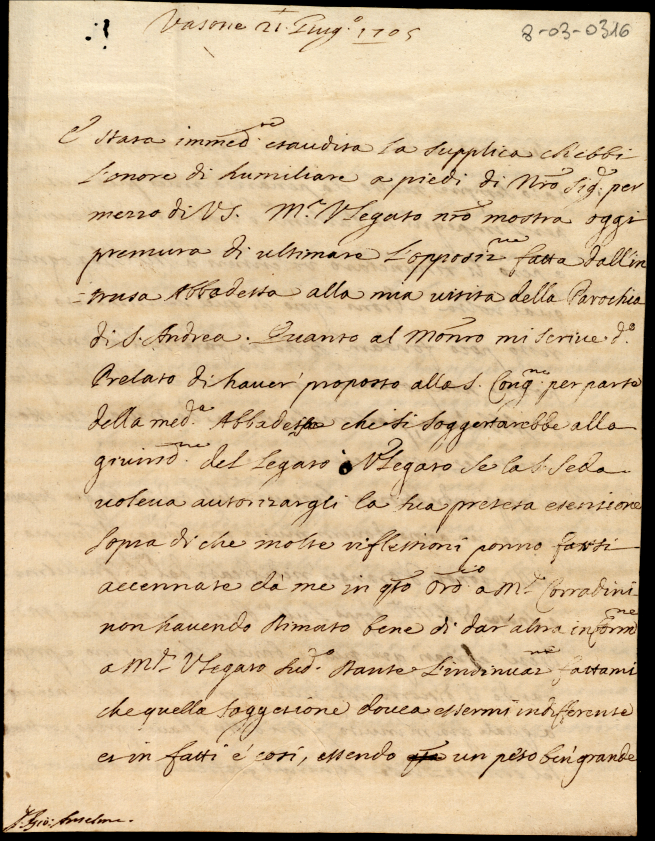 Vasone 21 Giug.o 1705
8-03-0316
È stata immed.te esaudita la supplica ch'ebbi
l'onore di humiliare a piedi di Nro Sig.e per
mezzo di VS. M.r VLegato nro mostra oggi
premura di ultimare l'opposiz.ne fatta dall'in
=trusa Abbadessa alla mia visita della Parochia
di S. Andrea. Quanto al Monro mi scrive d.o
Prelato di haver' proposto alla S. Cong.ne per parte
della med.a Abbadessa che si soggettarebbe alla
giurisd.ne del Legato ò VLegato se la S. Sede
voleva autorizargli la sua pretesa esenzione
sopra di che molte riflessioni ponno farsi
accennate da me in qto Ord.o a M.r Corradini
non havendo stimato bene di dar' altra inform.ne
a M.r VLegato sud.o stante l'insinuaz.ne fattami
che quella soggezione dovea essermi indifferente
et in fatti è così, essendo un peso ben grande
Gio: Anselmo.